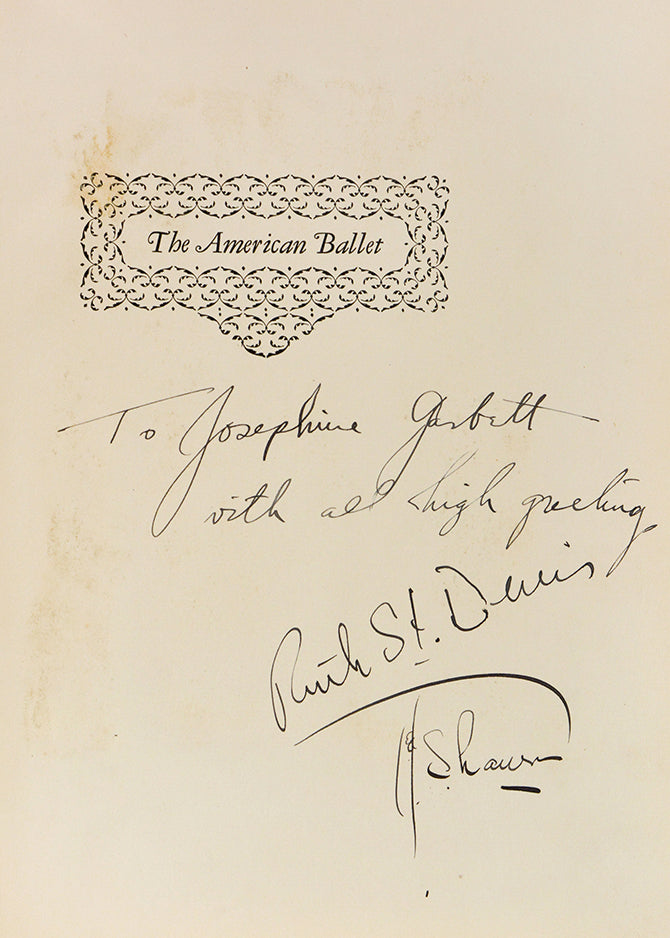 The American Ballet
To Josephine Garbett
with all high greeting
Ruth St. Denis
Shawn